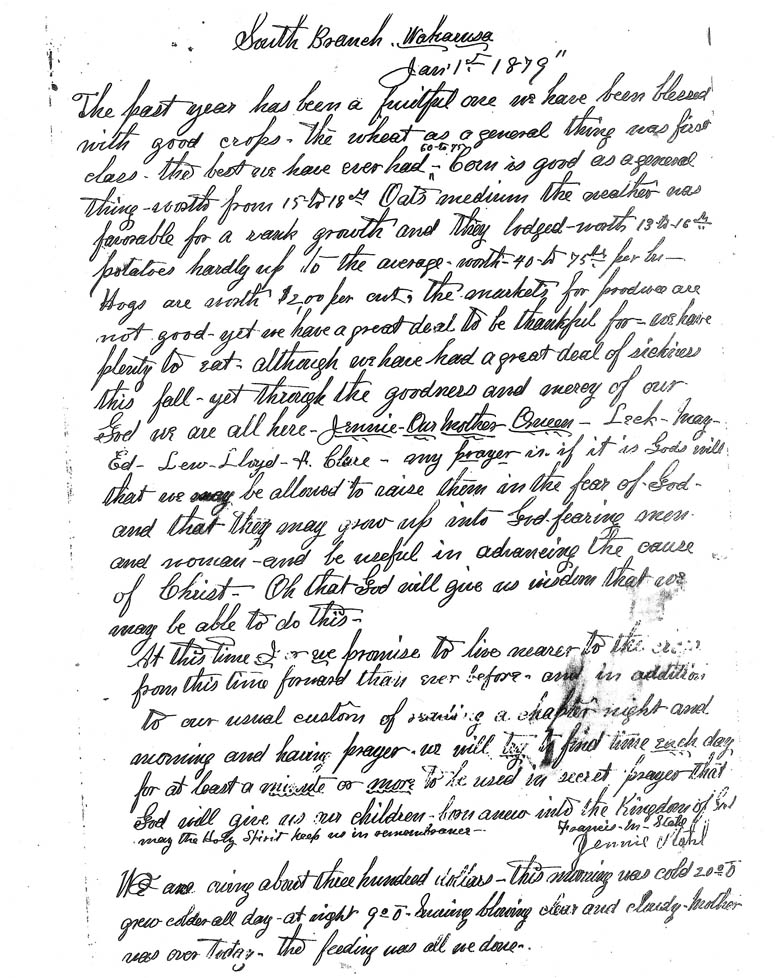 South Branch. Wakarusa
Jan' 1st 1879"
The past year has been a fruitful one we have been blessed
with good crops - the wheat as a general thing was first
class - the best we have ever had - 60 to 75 Corn is good as a general
thing - worth from 15 to 18 cts Oats medium the weather was
favorable for a rank growth and they lodged - worth 13 to 16 cts
potatoes hardly up to the average - worth 40 to 75 cts per bu -
Hogs are worth $2,00 per cwt, the markets for produce are
not good - yet we have a great deal to be thankful for - we have
plenty to eat - although we have had a great deal of sickness
this fall - yet through the goodness and mercy of our
God we are all here - Jennie - Our Mother Queen - Leck - May -
Ed - Lew - Lloyd - A. Clare - my prayer is if it is Gods will
that we may be allowed to raise them in the fear of God -
and that they may grow up into God fearing men
and woman - and be useful in advancing the cause
of Christ - Oh that God will give us wisdom that we
may be able to do this -
At this time I or we promise to live nearer to the cross
from this time forward than ever before - and in addition
to our usual custom of reading a chapter night and
morning and having prayer - we will try to find time each day
for at least a minute or more to be used in secret prayer that
God will give us our children - born anew into the Kingdom of God
may the Holy Spirit keep us in remembrance -
Francis - M - Stahl
Jennie Stahl
We are owing about three hundred dollars - This morning was cold 20 o
grew colder all day - at night 9 o - blowing clear and cloudy - Mother
was over Today - the feeding was all we done -